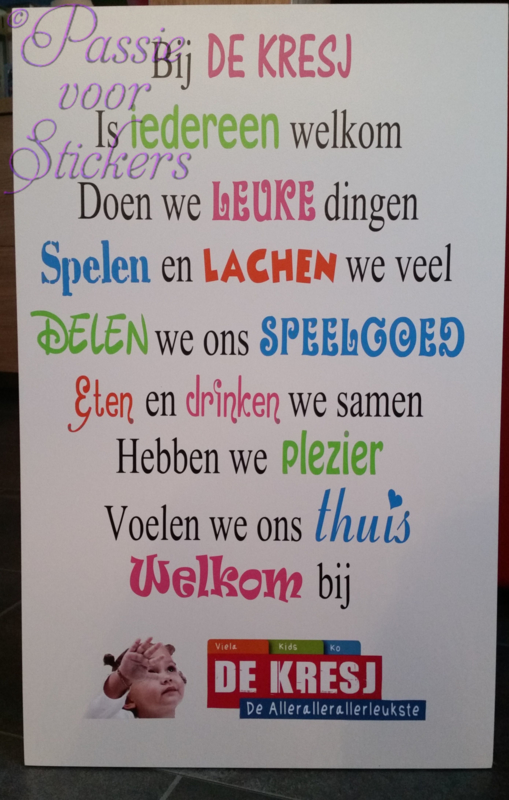 © Passie
voor
Stickers
Bij DE KRESJ
Is iedereen welkom
Doen we LEUKE dingen
Spelen en LACHEN we veel
DELEN we ons SPEELGOED
Eten en drinken we samen
Hebben we plezier
Voelen we ons thuis
Welkom bij
Viela Kids Ko
DE KRESJ
De Allerallerallerleukste